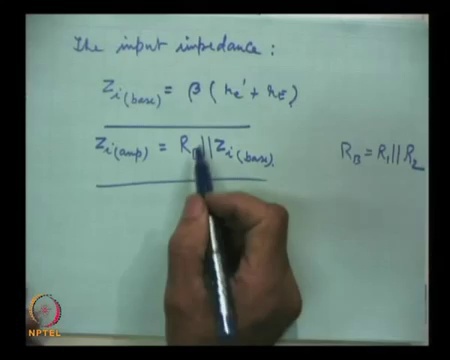 The input impedance :
Z i(base) = β ( re' + rE )
Zi(amp) = RB || Zi(base).
RB = R1 || R2
NPTEL